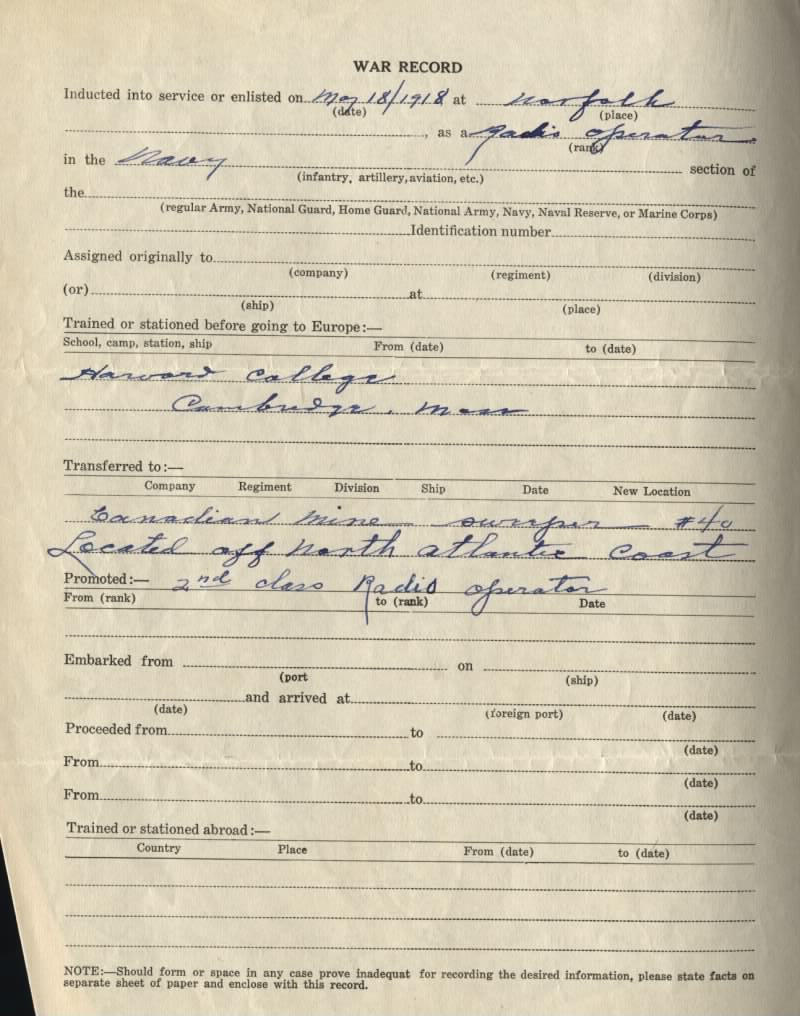 WAR RECORD
Inducted into service or enlisted on May 18/1918 at Norfolk
(date) (place)
, as a Radio operator
(rank)
in the Navy section of
(infantry, artillery, aviation, etc.)
the
(regular Army, National Guard, Home Guard, National Army, Navy, Naval Reserve, or Marine Corps)
Identification number
Assigned originally to
(company) (regiment) (division)
(or) at
(ship) (place)
Trained or stationed before going to Europe:—
School, camp, station, ship From (date) to (date)
Harvard College
Cambridge, Mass
Transferred to:—
Company Regiment Division Ship Date New Location
Canadian Mine sweeper #40
Located off North Atlantic Coast
Promoted:— 2nd class Radio operator
From (rank) to (rank) Date
Embarked from on
(port (ship)
and arrived at
(date) (foreign port) (date)
Proceeded from to
(date)
From to
(date)
From to
(date)
Trained or stationed abroad:—
Country Place From (date) to (date)
NOTE:—Should form or space in any case prove inadequat for recording the desired information, please state facts on
separate sheet of paper and enclose with this record.